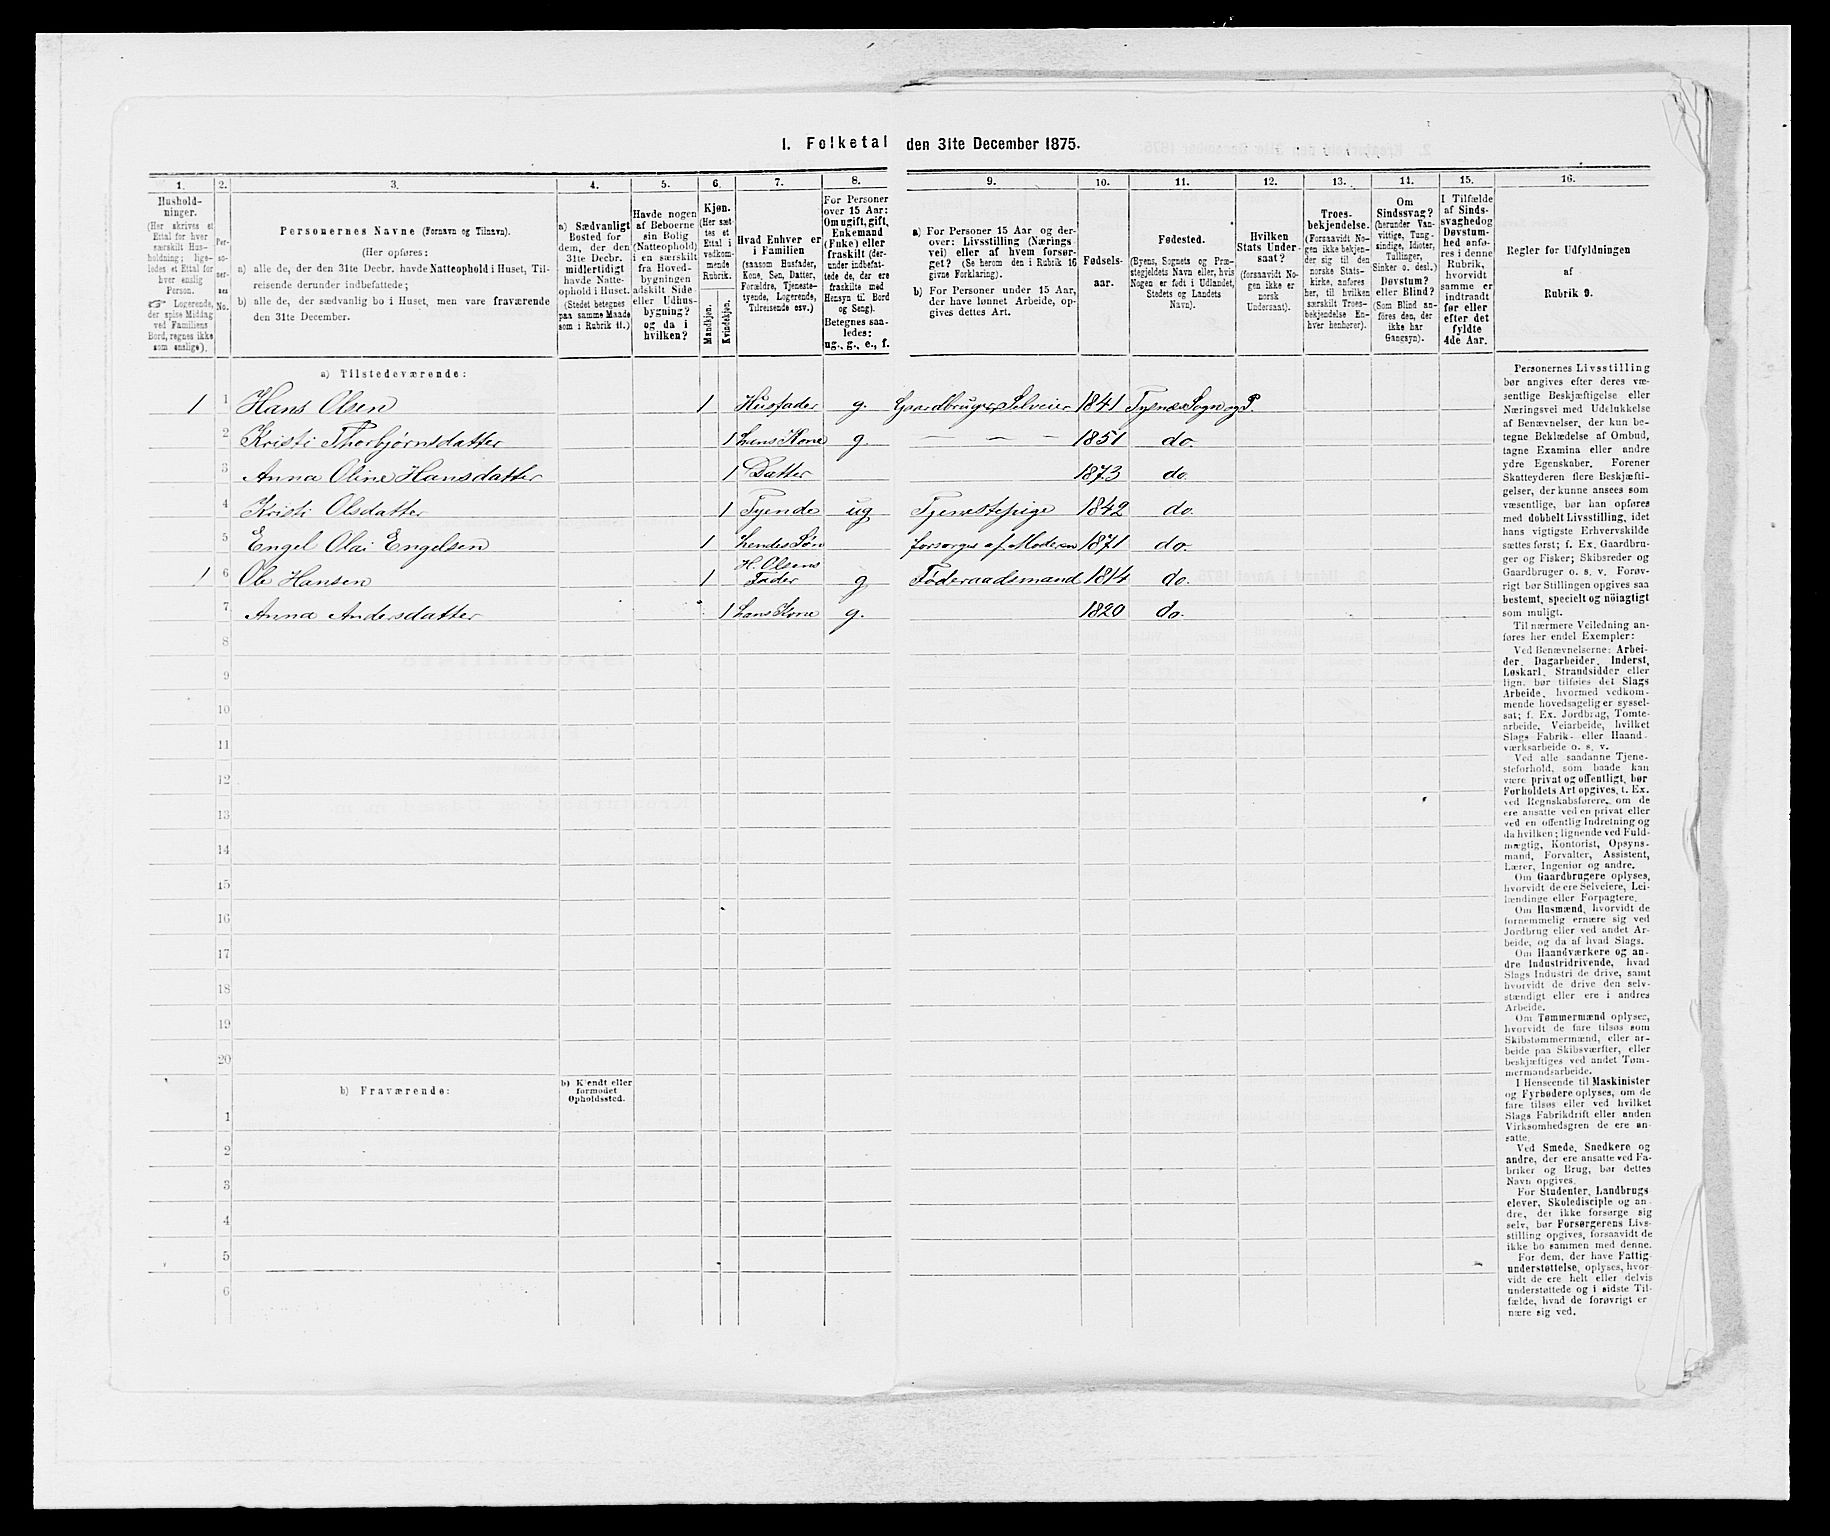 1. Folketal den 31te December 1875.
1. 2. 3. 4. 5. 6. 7. 8. 9. 10. 11. 12. 13. 14. 15. 16.
Husholdninger.
(Her skrives et
Ettal for hver
særskilt Husholdning; ligeledes et Ettal for
hver enslig
Person.
☞ Logerende,
der spise Middag
ved Familiens
Bord, regnes ikke
som enslige).
Personernes No.
Personernes Navne (Fornavn og Tilnavn).
(Her opføres:
a) alle de, der den 31te Decbr. havde Natteophold i Huset, Tilreisende derunder indbefattede;
b) alle de, der sædvanlig bo i Huset, men vare fraværende
den 31te December.
a) Sædvanligt
Bosted for
dem, der den
31te Decbr.
midlertidigt
havde Natteophold i Huset.
(Stedet betegnes
paa samme Maade
som i Rubrik 11.)
Havde nogen
af Beboerne
sin Bolig
(Natteophold)
i en særskilt
fra Hovedbygningen
adskilt Side-
eller Udhusbygning?
og da i
hvilken?
Kjøn.
(Her sættes et
Ettal i
vedkommende
Rubrik.
Mandkjøn.
Kvindekjøn.
Hvad Enhver er
i Familien
(saasom Husfader,
Kone, Søn, Datter,
Forældre, Tjenestetyende, Logerende,
Tilreisende osv.)
For Personer
over 15 Aar:
Om ugift, gift,
Enkemand
(Enke) eller
fraskilt (derunder indbefattede de, der ere
fraskilte med
Hensyn til Bord
og Seng).
Betegnes saaledes:
ug., g., e., f.
a) For Personer 15 Aar og derover: Livsstilling (Næringsvei) eller af hvem forsørget? (Se herom den i Rubrik 16
givne Forklaring).
b) For Personer under 15 Aar,
der have lønnet Arbeide, opgives dettes Art.
Fødselsaar.
Fødested.
(Byens, Sognets og Præstegjeldets Navn eller, hvis
Nogen er født i Udlandet,
Stedets og Landets
Navn).
Hvilken
Stats Undersaat?
(forsaavidt Nogen ikke er
norsk
Undersaat).
Troesbekjendelse.
(Forsaavidt Nogen ikke bekjender sig til den
norske Statskirke, anføres
her, til hvilken
særskilt Troesbekjendelse Enhver henhører).
Om
Sindssvag?
(herunder Vanvittige, Tungsindige, Idioter,
Tullinger,
Sinker o. desl.)
Døvstum?
eller Blind?
(Som Blind anføres den, der
ikke har
Gangsyn).
I Tilfælde
af Sindssvaghed og
Døvstumhed anføres i denne
Rubrik,
hvorvidt
samme er
indtraadt
før eller
efter det
fyldte
4de Aar.
Regler for Udfyldningen
af
Rubrik 9.
a) Tilstedeværende:
1 1 Hans Olsen 1 Husfader g. Gaardbruger Selveier 1841 Tysnæs Sogn og P.
2 Kristi Thorbjørnsdatter 1 hans Kone g. — — — 1851 do.
3 Anna Oline Hansdatter 1 Datter 1873 do.
4 Kristi Olsdatter 1 Tyende ug Tjenestepige 1842 do.
5 Engel Olai Engelsen 1 hendes Søn forsørges af Moderen 1871 do.
1 6 Ole Hansen 1 H. Olsens Fader g Føderaadsmand 1814 do.
7 Anna Andersdatter 1 hans Kone g. 1820 do.
8
9
10
11
12
13
14
15
16
17
18
19
20
b) Fraværende:
b) Kjendt eller
formodet
Opholdssted.
1
2
3
4
5
6
Personernes Livsstilling
bør angives efter deres væsentlige Beskjæftigelse eller
Næringsvei med Udelukkelse
af Benævnelser, der kun betegne Beklædelse af Ombud,
tagne Examina eller andre
ydre Egenskaber. Forener
Skatteyderen flere Beskjæftigelser, der kunne ansees som
væsentlige, bør han opføres
med dobbelt Livsstilling, idet
hans vigtigste Erhvervskilde
sættes først; f. Ex. Gaardbruger og Fisker; Skibsreder og
Gaardbruger o. s. v. Forøvrigt bør Stillingen opgives saa
bestemt, specielt og nöiagtigt
som muligt.
Til nærmere Veiledning anføres her endel Exempler:
Ved Benævnelserne: Arbeider, Dagarbeider, Inderst,
Løskarl, Strandsidder eller
lign. bør tilføies det Slags
Arbeide, hvormed vedkommende hovedsagelig er sysselsat; f. Ex. Jordbrug, Tomtearbeide, Veiarbeide, hvilket
Slags Fabrik- eller Haandværksarbeide o. s. v.
Ved alle saadanne Tjenesteforhold, som baade kan
være privat og offentligt, bør
Forholdets Art opgives, f. Ex.
ved Regnskabsførere, om de
ere ansatte ved en privat eller
ved en offentlig Indretning og
da hvilken; lignende ved Fuldmægtig, Kontorist, Opsynsmand, Forvalter, Assistent,
Lærer, Ingeniør og andre.
Om Gaardbrugere oplyses,
hvorvidt de ere Selveiere, Leilændinge eller Forpagtere.
Om Husmænd, hvorvidt de
fornemmelig ernære sig ved
Jordbrug eller ved andet Arbeide, og da af hvad Slags.
Om Haandværkere og andre Industridrivende, hvad
Slags Industri de drive, samt
hvorvidt de drive den selvstændigt eller ere i andres
Arbeide.
Om Tømmermænd oplyses,
hvorvidt de fare tilsøs som
Skibstømmermænd, eller arbeide paa Skibsværfter, eller
beskjæftiges ved andet Tømmermandsarbeide.
I Henseende til Maskinister
og Fyrbødere oplyses, om de
fare tilsøs eller ved hvilket
Slags Fabrikdrift eller anden
Virksomhedsgren de ere ansatte.
Ved Smede, Snedkere og
andre, der ere ansatte ved Fabriker og Brug, bør dettes
Navn opgives.
For Studenter, Landbrugselever, Skoledisciple og andre, der ikke forsørge sig
selv, bør Forsørgerens Livsstilling opgives, forsaavidt de
ikke bo sammen med denne.
For dem, der have Fattigunderstøttelse, oplyses, hvorvidt de ere helt eller delvis
understøttede og i sidste Tilfælde, hvad de forøvrigt ernære sig ved.